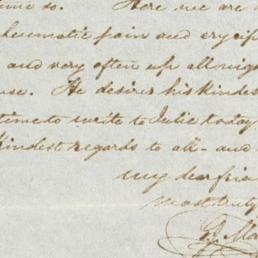 so. Here we are
rheumatic pain and
and very often up all nig
He desires his kindes
time to write to Julie today
kindest regards to all - and
my dear frie
most truly